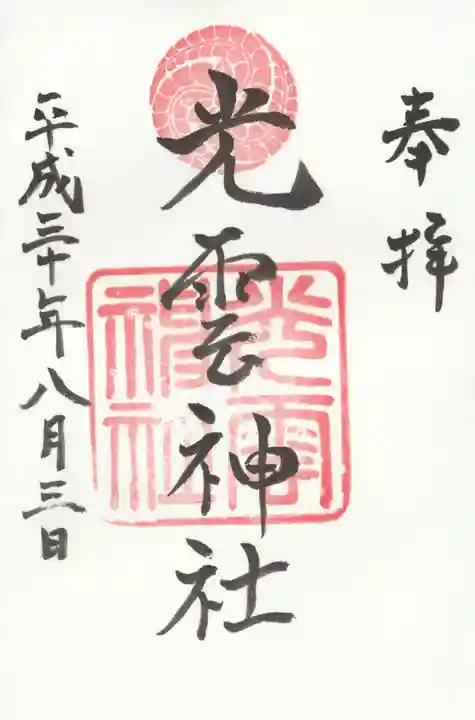 奉拝
光雲神社
光雲神社
平成三十年八月三日